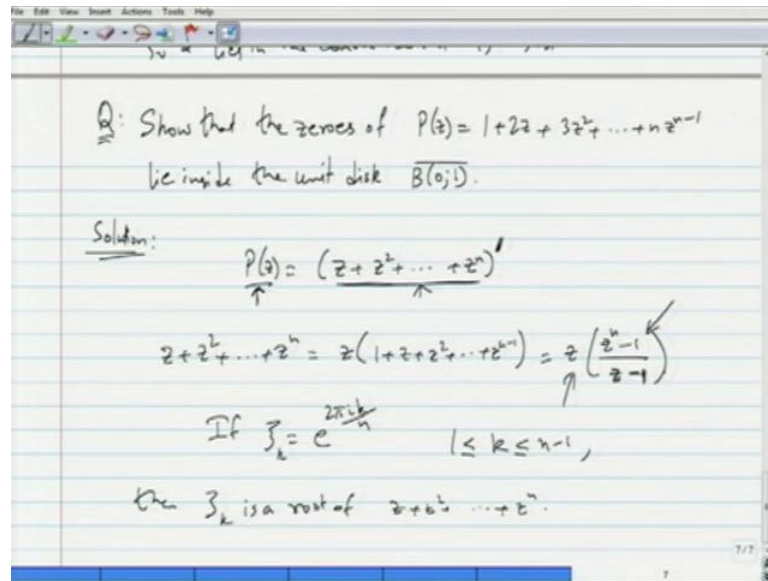 File Edit View Insert Actions Tools Help
Q: Show that the zeroes of P(z) = 1+2z + 3z²+ ... + n zⁿ⁻¹
lie inside the unit disk \overline{B(0;1)}.
Solution:
P(z) = (z + z² + ... + zⁿ)'
z + z² + ... + zⁿ = z(1+z+z²+...+zⁿ⁻¹) = z((zⁿ-1)/(z-1))
If ζₖ = e^{2πik/n} 1 ≤ k ≤ n-1,
the ζₖ is a root of z+z²+ ... + zⁿ.
7/7
7